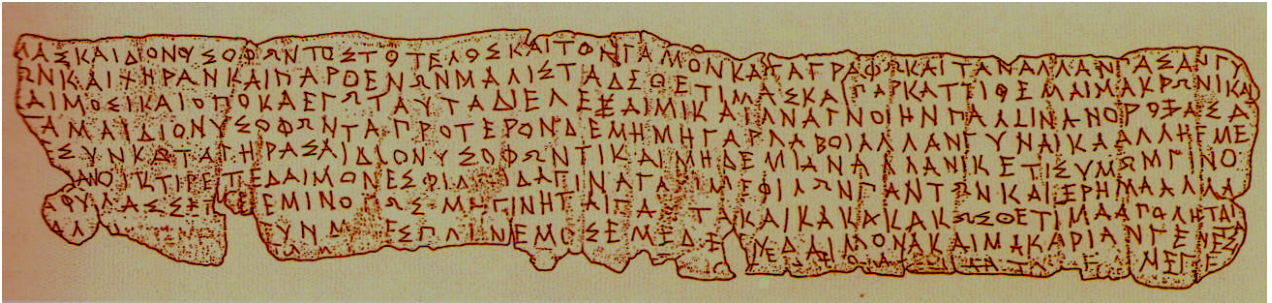 ΜΑΣΚΑΙΔΙΟΝΥΣΟΦΩΝΤΟΣΤΟΤΕΛΟΣΚΑΙΤΟΝΓΑΜΟΝΚΑΤΑΓΡΑΦΩΚΑΙΤΑΝΑΛΛΑΝΠΑΣΑΝΓΥ
ΩΝΚΑΙΧΗΡΑΝΚΑΙΠΑΡΘΕΝΩΝΜΑΛΙΣΤΑΔΕΘΕΤΙΜΑΣΚΑΙΠΑΡΚΑΤΤΙΘΕΜΑΙΜΑΚΡΩΝΙΚΑΙ
ΑΙΜΟΣΙΚΑΙΟΠΟΚΑΕΓΩΤΑΥΤΑΔΙΕΛΕΞΑΙΜΙΚΑΙΑΝΑΓΝΟΙΗΝΠΑΛΙΝΑΝΟΡΟΞΑΣΑ
ΓΑΜΑΙΔΙΟΝΥΣΟΦΩΝΤΑΠΡΟΤΕΡΟΝΔΕΜΗΜΗΓΑΡΛΑΒΟΙΑΛΛΑΝΓΥΝΑΙΚΑΑΛΛΗΕΜΕ
ΣΥΝΚΑΤΑΓΗΡΑΣΑΙΔΙΟΝΥΣΟΦΩΝΤΙΚΑΙΜΗΔΕΜΙΑΝΑΛΛΑΝΙΚΕΤΙΣΥΜΩΜΓΙΝΟ
ΑΝΟΙΚΤΙΡΕΤΕΔΑΙΜΟΝΕΣΦΙΛΟΙΔΑΓΙΝΑΓΑΡΙΜΕΦΙΛΩΝΠΑΝΤΩΝΚΑΙΕΡΗΜΑΑΛΛΑ
ΑΦΥΛΑΣΣΕΤΕΕΜΙΝΟΠΩΣΜΗΓΙΝΗΤΑΙΤΑ ΤΑΚΑΙΚΑΚΑΚΑΚΩΣΘΕΤΙΜΑΑΠΟΛΗΤΑΙ
ΑΛ ΥΝΜ ΕΣΠΛΙΝΕΜΟΣΕΜΕΔΕ ΥΔΑΙΜΟΝΑΚΑΙΜΑΚΑΡΙΑΝΓΕΝΕΣ
ΜΕΓΕ